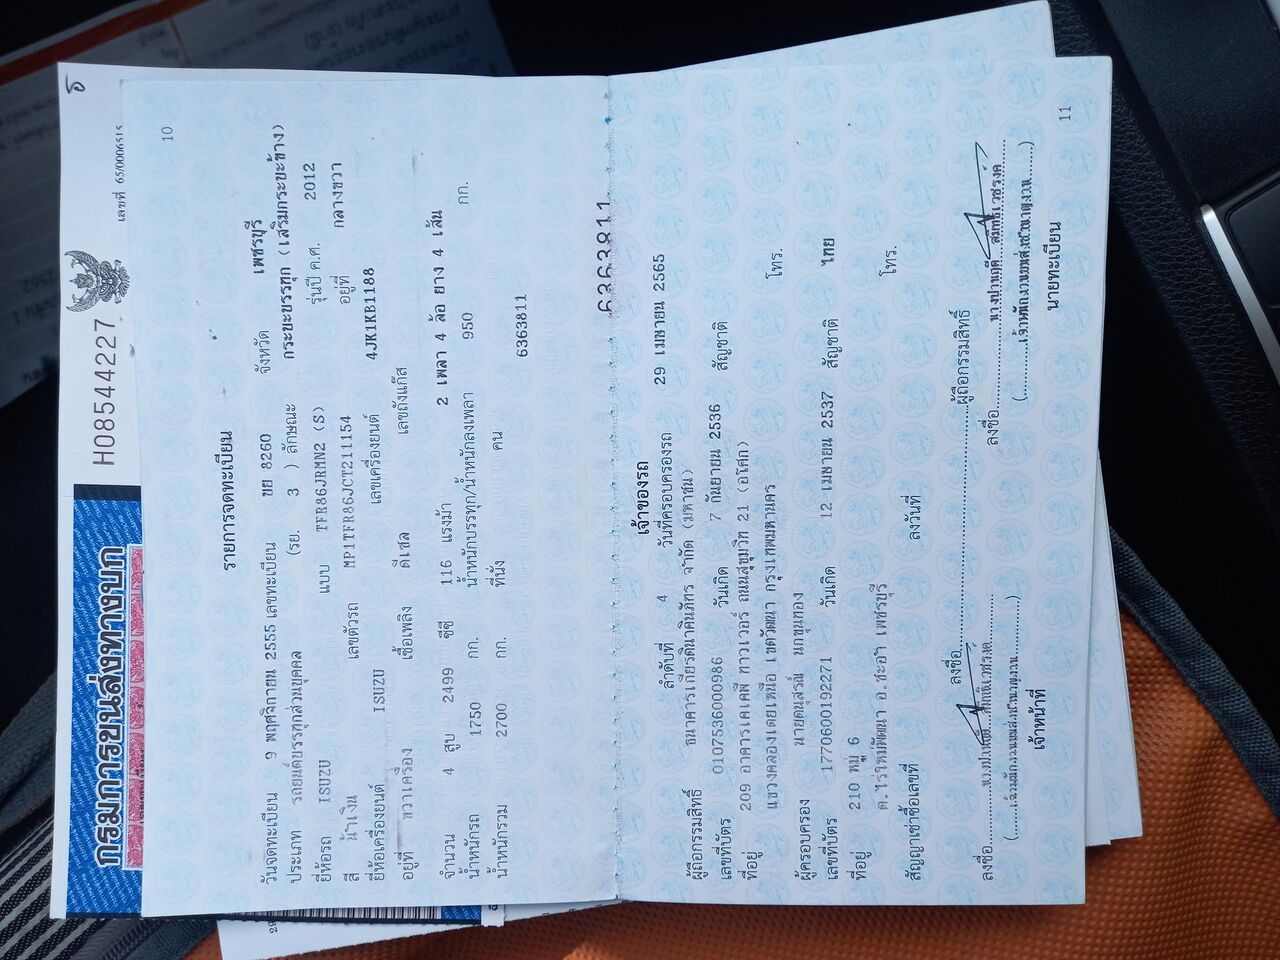 กรมการขนส่งทางบก
H08544227
เลขที่ 65/0006515
10
รายการจดทะเบียน
วันจดทะเบียน 9 พฤศจิกายน 2555 เลขทะเบียน ขย 8260 จังหวัด เพชรบุรี
ประเภท รถยนต์บรรทุกส่วนบุคคล (รย. 3 ) ลักษณะ กระบะบรรทุก (เสริมกระบะข้าง)
ยี่ห้อรถ ISUZU แบบ TFR86JRMN2 (S) รุ่นปี ค.ศ. 2012
สี น้ำเงิน เลขตัวรถ MP1TFR86JCT211154 อยู่ที่ กลางขวา
ยี่ห้อเครื่องยนต์ ISUZU เลขเครื่องยนต์ 4JK1KB1188
อยู่ที่ ขวาเครื่อง เชื้อเพลิง ดีเซล เลขถังแก๊ส
จำนวน 4 สูบ 2499 ซีซี 116 แรงม้า 2 เพลา 4 ล้อ ยาง 4 เส้น
น้ำหนักรถ 1750 กก. น้ำหนักบรรทุก/น้ำหนักลงเพลา 950 กก.
น้ำหนักรวม 2700 กก. ที่นั่ง คน
6363811
6363811
เจ้าของรถ
ลำดับที่ 4 วันที่ครอบครองรถ 29 เมษายน 2565
ผู้ถือกรรมสิทธิ์ ธนาคารเกียรตินาคินภัทร จำกัด (มหาชน)
เลขที่บัตร 0107536000986 วันเกิด 7 กันยายน 2536 สัญชาติ
ที่อยู่ 209 อาคารเคเคพี ทาวเวอร์ ถนนสุขุมวิท 21 (อโศก)
แขวงคลองเตยเหนือ เขตวัฒนา กรุงเทพมหานคร โทร.
ผู้ครอบครอง นายดนุสรณ์ นกขุนทอง
เลขที่บัตร 1770600192271 วันเกิด 12 เมษายน 2537 สัญชาติ ไทย
ที่อยู่ 210 หมู่ 6
ต.ไร่ใหม่พัฒนา อ.ชะอำ เพชรบุรี โทร.
สัญญาเช่าซื้อเลขที่ ลงวันที่
ลงชื่อ ผู้ถือกรรมสิทธิ์
ลงชื่อ ลงชื่อ
(เจ้าพนักงานขนส่งชำนาญงาน) (เจ้าพนักงานขนส่งชำนาญงาน)
เจ้าหน้าที่ นายทะเบียน
11